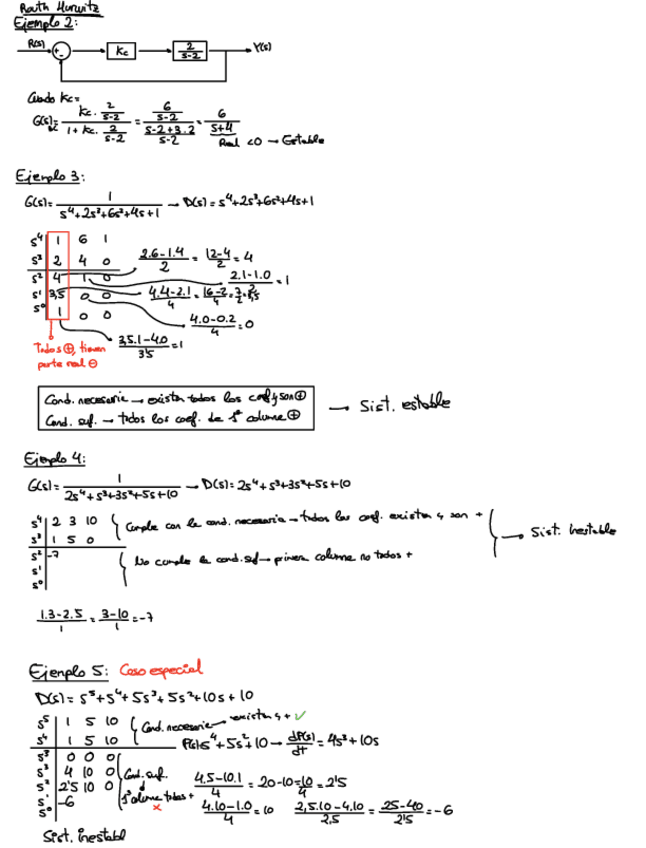 Routh Hurwitz
Ejemplo 2:
R(s) + - Kc 2/(s-2) Y(s)
Cuando Kc=
G(s)BC = (Kc · 2/(s-2))/(1 + Kc · 2/(s-2)) = (6/(s-2))/((s-2+3.2)/(s-2)) = 6/(s+4)
Real <0 → Estable
Ejemplo 3:
G(s)= 1/(s⁴+2s³+6s²+4s+1) → D(s)= s⁴+2s³+6s²+4s+1
s⁴ 1 6 1
s³ 2 4 0
(2.6-1.4)/2 = (12-4)/2 = 4
s² 4 1 0
(2.1-1.0)/2 = 1
s¹ 3,5 0 0
(4.4-2.1)/4 = (16-2)/4 = 7/2 = 3,5
s⁰ 1 0 0
(4.0-0.2)/4 = 0
(3,5.1-4.0)/3'5 = 1
Todos ⊕, tienen
parte real ⊖
Cond. necesaria → existen todos los coef y son ⊕
Cond. suf. → todos los coef. de 1ª columna ⊕
→ Sist. estable
Ejemplo 4:
G(s)= 1/(2s⁴+s³+3s²+5s+10) → D(s)= 2s⁴+s³+3s²+5s+10
s⁴ 2 3 10
s³ 1 5 0
Cumple con la cond. necesaria → todos los coef. existen y son +
s² -7
No cumple la cond. suf → primera columna no todos +
s¹
s⁰
→ Sist. inestable
(1.3-2.5)/1 = (3-10)/1 = -7
Ejemplo 5: Caso especial
D(s)= s⁵+s⁴+5s³+5s²+10s+10
s⁵ 1 5 10
s⁴ 1 5 10
Cond. necesaria → existen y + ✓
P(s)=s⁴+5s²+10 → dP(s)/dt = 4s³+10s
s³ 0 0 0
s³ 4 10 0
s² 2'5 10 0
s¹ -6
s⁰
Cond. suf.
1ª columna todos +
×
(4.5-10.1)/4 = 20-10 = 10/4 = 2'5
(4.10-1.0)/4 = 10
(2,5.10-4.10)/2,5 = (25-40)/2'5 = -6
Sist. inestabl